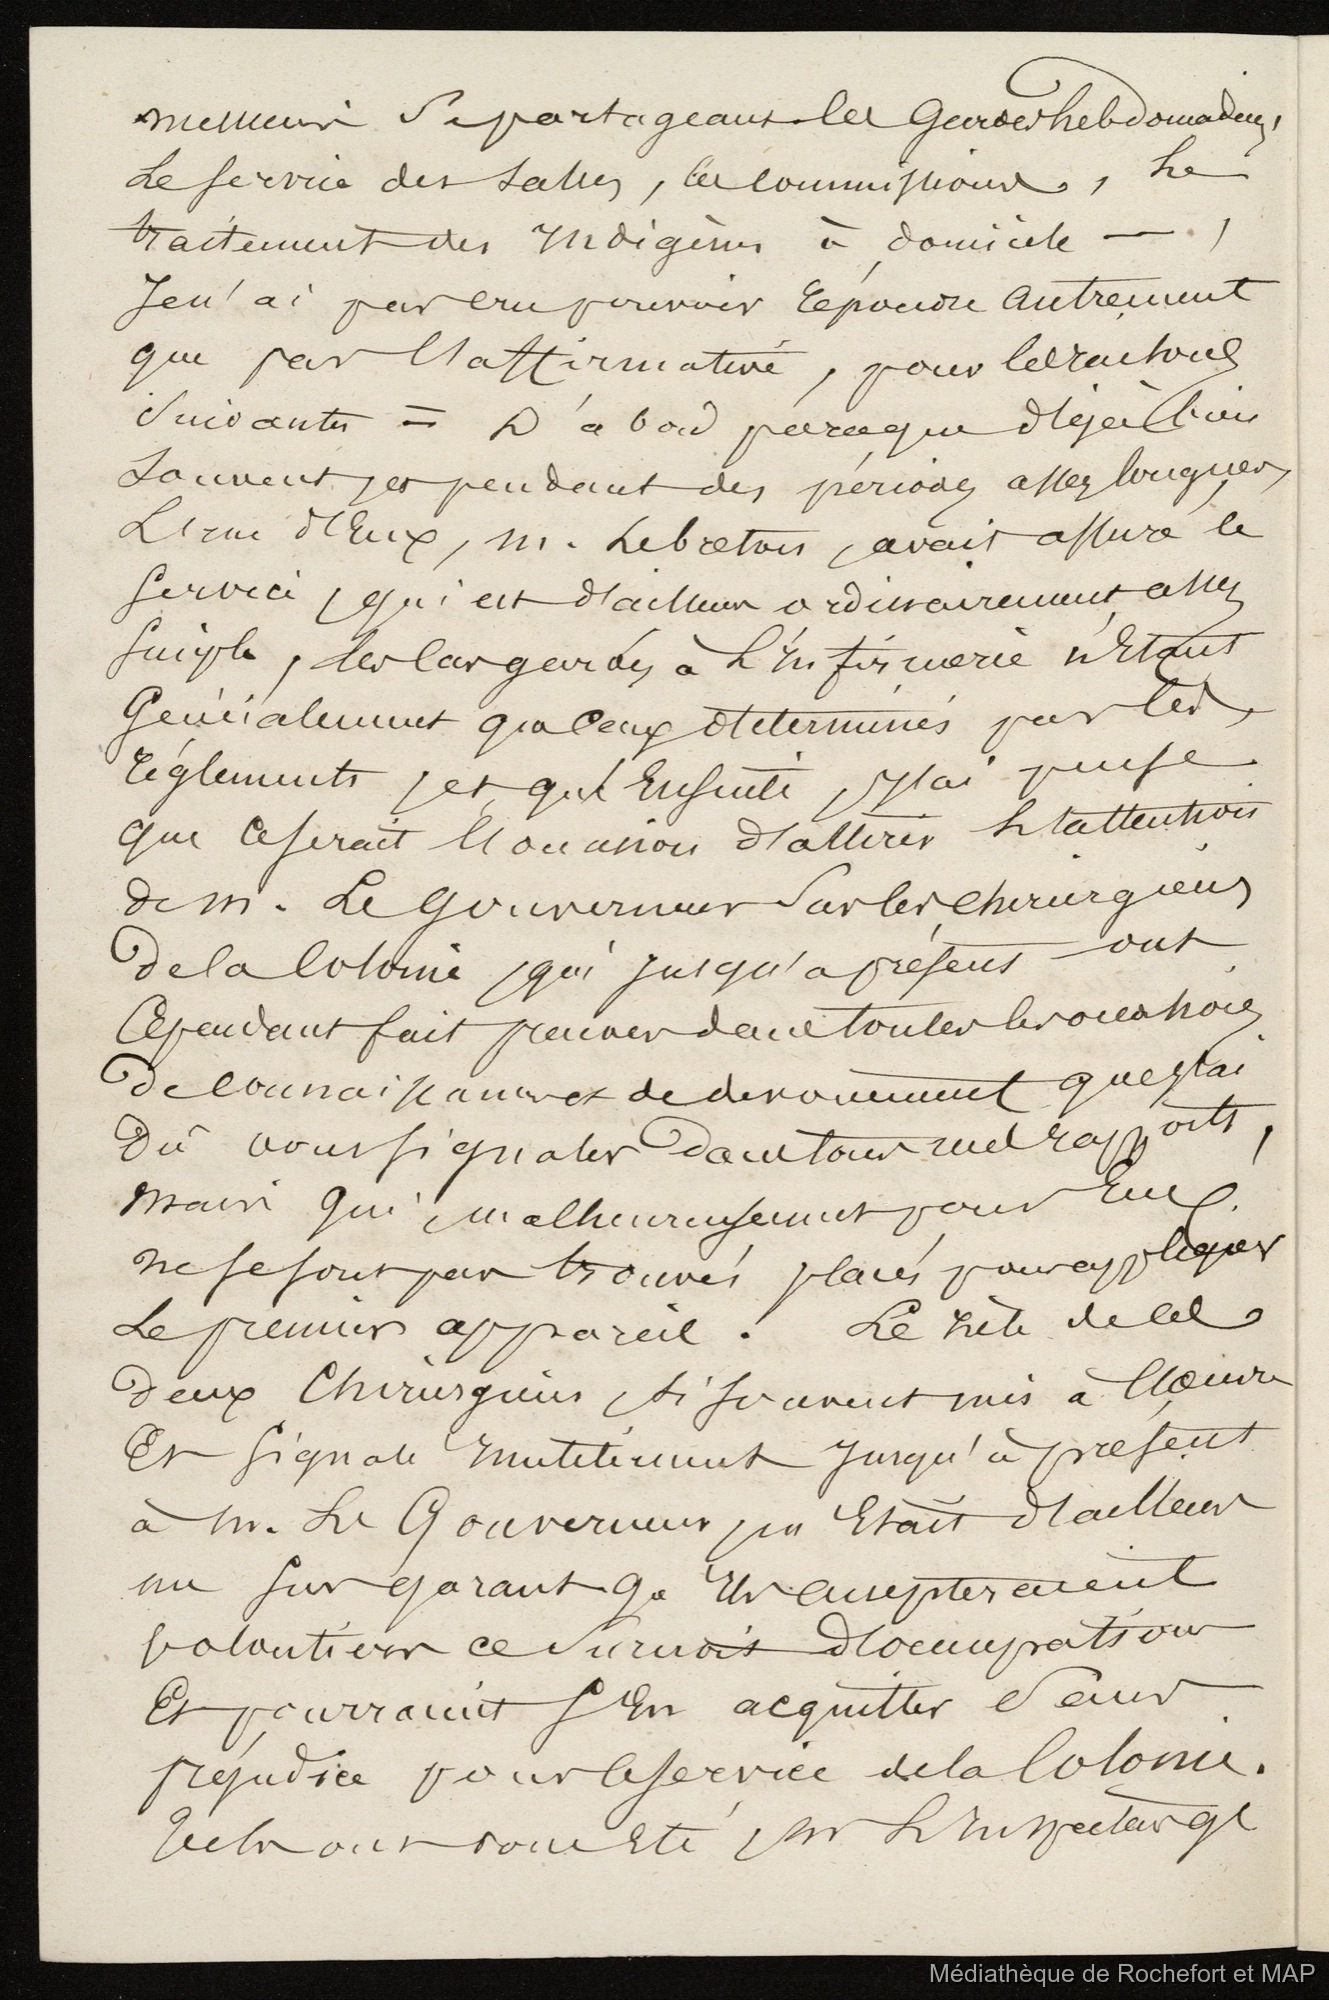 messieurs Se partageant les Gardes hebdomadaires,
Le service des salles, les commissions, Le
traitement des Indigènes à domicile — ,
Je n'ai pas cru pouvoir répondre autrement
que par l'affirmative, pour les raisons
Suivantes = D'abord parceque déjà bien
souvent, et pendant des périodes assez longues,
L'un d'Eux, m. Lebreton, avait assuré le
service, qui est d'ailleurs ordinairement assez
simple, les cas gardés à L'Infirmerie n'Etant
Généralement que Ceux determinés par les
réglements, et qu'Ensuite, j'ai pensé
que ce serait l'occasion d'attirer L'attention
de m. Le Gouverneur Sur les Chirurgiens
De la Colonie, qui jusqu'a présent ont
Cependant fait preuves dans toutes les occasions
De connaissances et de devouement que j'ai
Dû vous signaler Dans tous mes rapports,
mais qui, malheureusement pour Eux
ne se sont pas trouvés placés pour appliquer
Le premier appareil. Le zèle de ces
deux Chirurgiens, si souvent mis à l'œuvre
Et signalé Inutilement Jusqu'à présent
à m. Le Gouverneur, m'Etait d'ailleurs
un sur garant q. Ils accepteraient
volontiers ce Surcroit d'occupations
Et pourraient S'En acquitter Sans
préjudice pour le service de la Colonie.
Tels ont Eté, mr L'Inspecteur gl